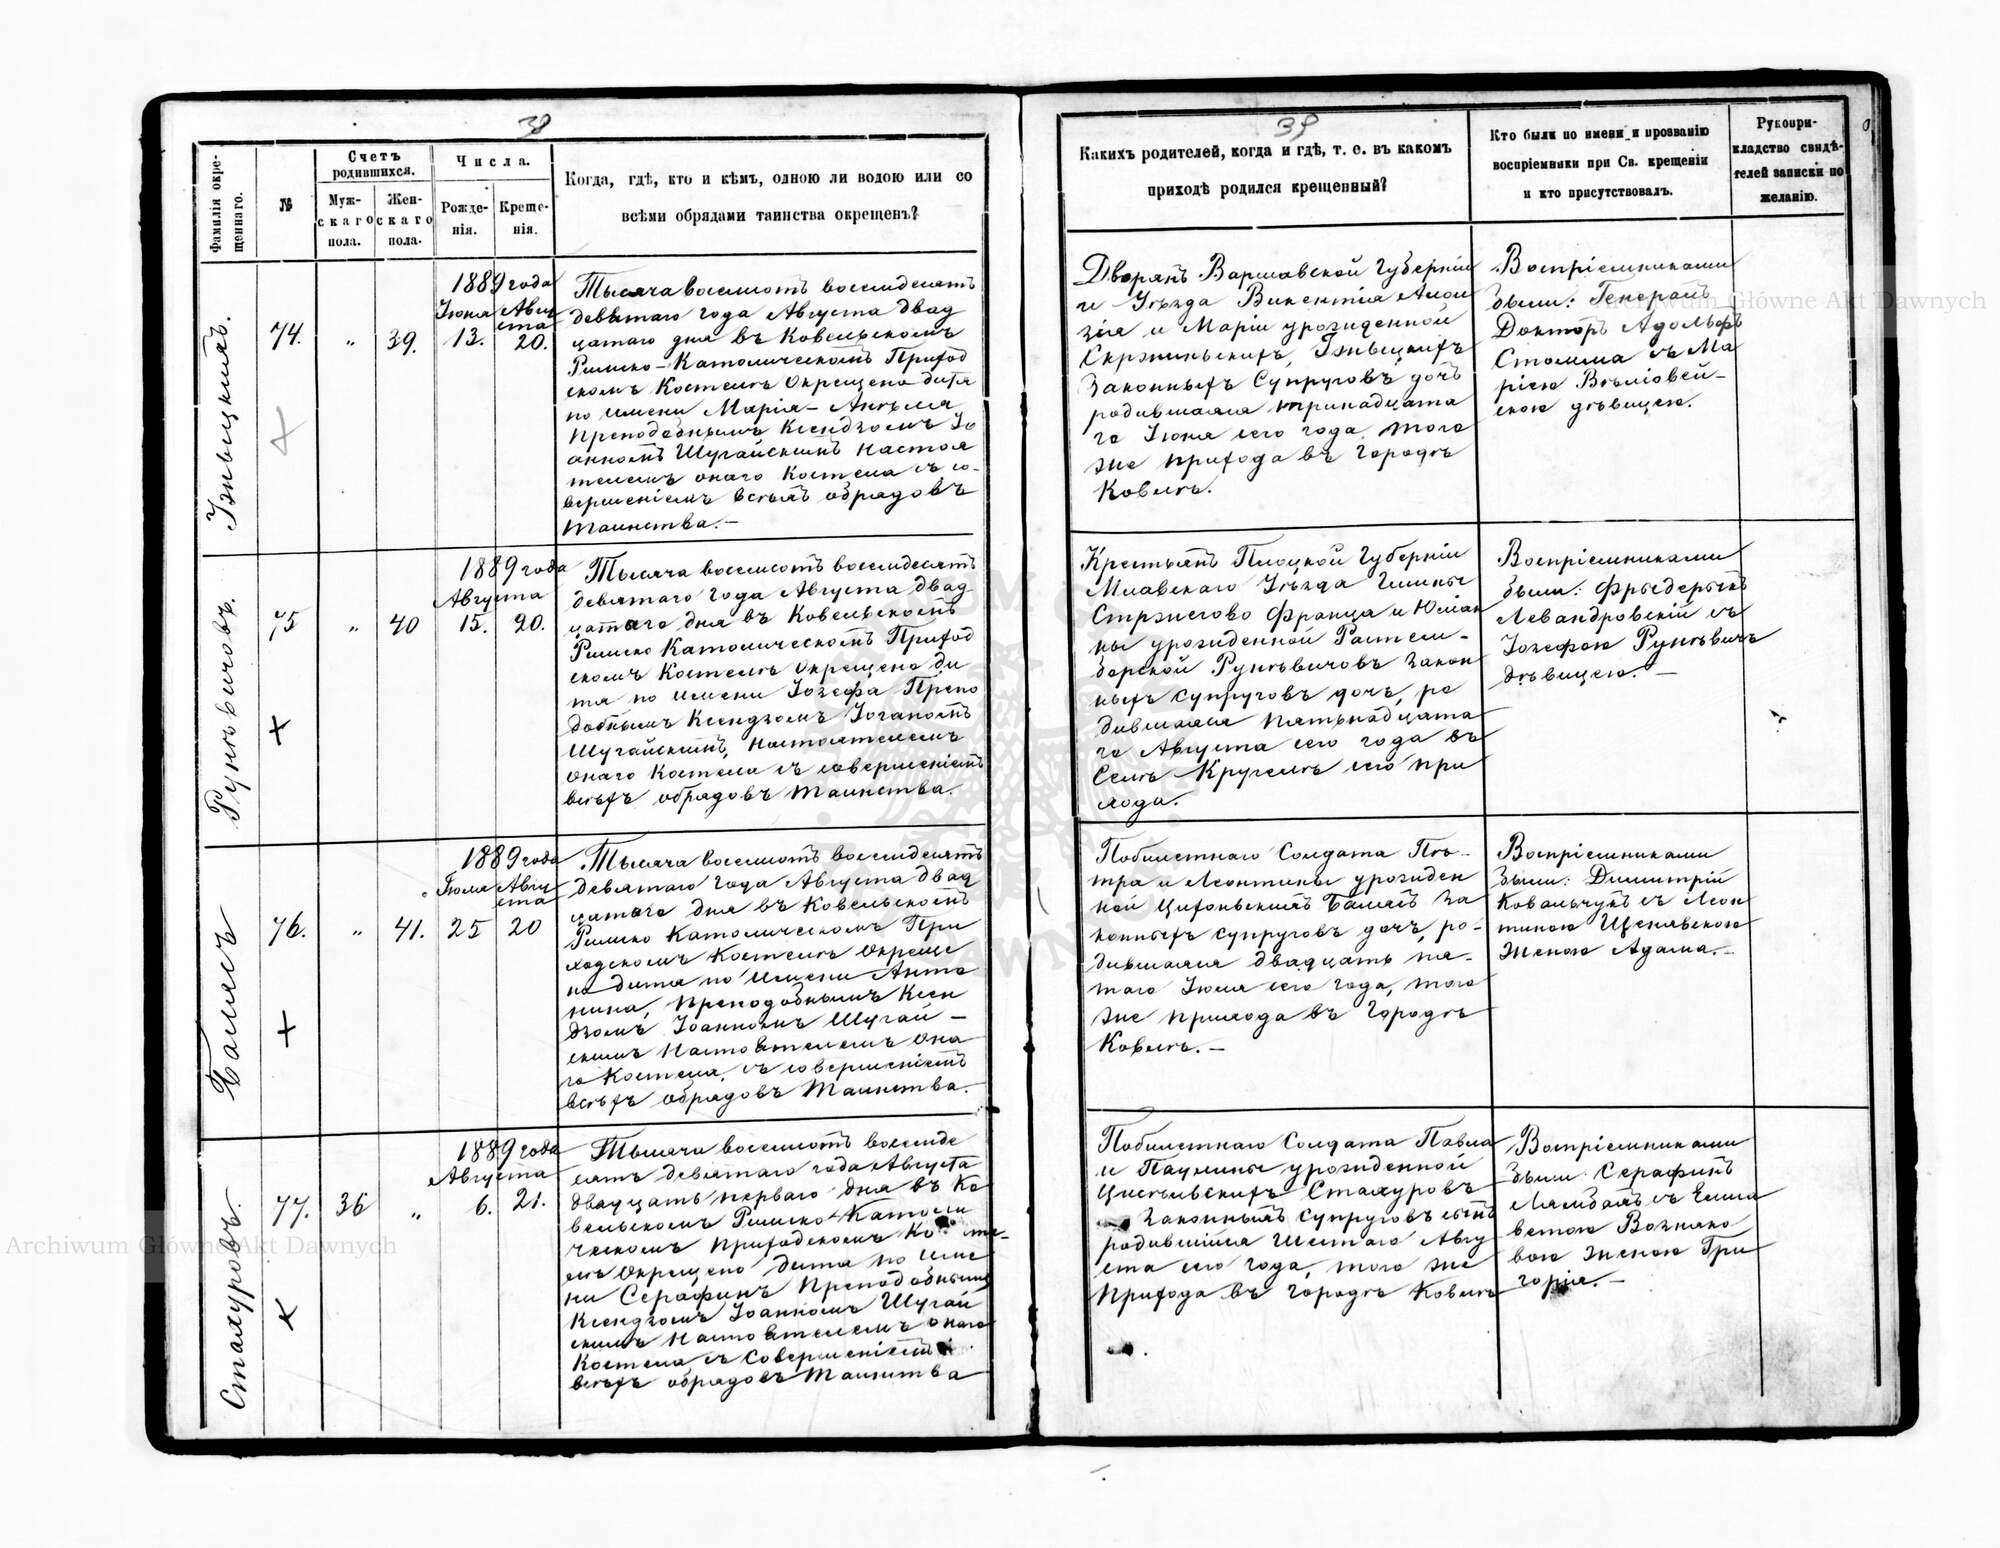 38
Фамилія окре-
щеннаго.
№
Счетъ
родившихся.
Муж-
скаго
пола.
Жен-
скаго
пола.
Числа.
Рожде-
нія.
Креще-
нія.
Когда, гдѣ, кто и кѣмъ, одною ли водою или со
всѣми обрядами таинства окрещенъ?
74.
„
39.
1889 года
Іюня Авгу
ста
13. 20.
Тысяча восемсотъ восемдесятъ
девятаго года Августа двад
цатаго дня въ Ковельскомъ
Римско-Католическомъ Приход
скомъ Костелѣ окрещено дитя
по имени Марія-Анѣля
Преподобнымъ Ксендзомъ Іо
анномъ Шугайскимъ Настоя
телемъ онаго Костела съ со-
вершеніемъ всѣхъ обрядовъ
Таинства.-
Рункѣвичовъ.
75
„
40
1889 года
Августа
15. 20.
Тысяча восемсотъ восемдесятъ
девятаго года Августа двад
цатаго дня въ Ковельскомъ
Римско Католическомъ Приход
скомъ Костелѣ окрещено ди
тя по имени Іозефа Препо
добнымъ Ксендзомъ Іоганомъ
Шугайскимъ, Настоятелемъ
онаго Костела съ совершеніемъ
всѣхъ обрядовъ Таинства.
76.
„
41.
1889 года
Іюля Авгу
ста
25 20
Тысяча восемсотъ восемдесятъ
девятаго года Августа двад
цатаго дня въ Ковельскомъ
Римско Католическомъ При
ходскомъ Костелѣ окреще
но дитя по имени Анто
нина, Преподобнымъ Ксен
дзомъ Іоанномъ Шугай-
скимъ Настоятелемъ она
го Костела, съ совершеніемъ
всѣхъ обрядовъ Таинства.-
Стахуровъ.
77.
36
„
1889 года
Августа
6. 21.
Тысяча восемсотъ восемде
сятъ девятаго года Августа
двадцать перваго дня въ Ко
вельскомъ Римско-Католи
ческомъ Приходскомъ Косте-
лѣ окрещено дитя по име
ни Серафинъ Преподобнымъ
Ксендзомъ Іоанномъ Шугай
скимъ Настоятелемъ онаго
Костела, съ совершеніемъ
всѣхъ обрядовъ Таинства
39
Какихъ родителей, когда и гдѣ, т. е. въ какомъ
приходѣ родился крещенный?
Кто были по имени и прозванію
воспріемники при Св. крещеніи
и кто присутствовалъ.
Рукопри-
кладство свидѣ-
телей записки по
желанію.
Дворянъ Варшавской Губерніи
и Уѣзда Викентія Алои
зія и Маріи урожденной
Законныхъ Супруговъ дочь
родившаяся тринадцата
го Іюня сего года, того
же прихода въ Городѣ
Ковлѣ.
Воспріемниками
были: Генералъ
Докторъ Адольфъ
съ Ма
ріею
дѣвицею.
Крестьянъ Плоцкой Губерніи
Млавскаго Уѣзда Гмины
Стржегово Франца и Юліан
ны урожденной
Рункѣвичовъ Закон
ныхъ супруговъ дочь, ро
дившаяся пятьнадцата
го Августа сего года въ
Селѣ Кругелѣ сего при
хода.
Воспріемниками
были: Фрыдерыкъ
Левандровскій съ
Іозефою Рункѣвичъ
дѣвицею.-
Побилетнаго Солдата Пѣ-
тра и Леонтины урожден
ной За
конныхъ супруговъ дочь, ро-
дившаяся двадцать пя-
таго Іюля сего года, того
же прихода въ Городѣ
Ковлѣ.-
Воспріемниками
были: Димитрій
Ковальчукъ съ Леон
тиною
Женою Адама.-
Побилетнаго Солдата Павла
и Паулины урожденной
Стахуровъ
Законныхъ супруговъ сынъ
родившійся Шестаго Авгу
ста сего года, того же
Прихода въ Городѣ Ковлѣ
Воспріемниками
были Серафинъ
съ Елиза
ветою Возняко
вою Женою Гри
горія.-
Archiwum Główne Akt Dawnych
Archiwum Główne Akt Dawnych